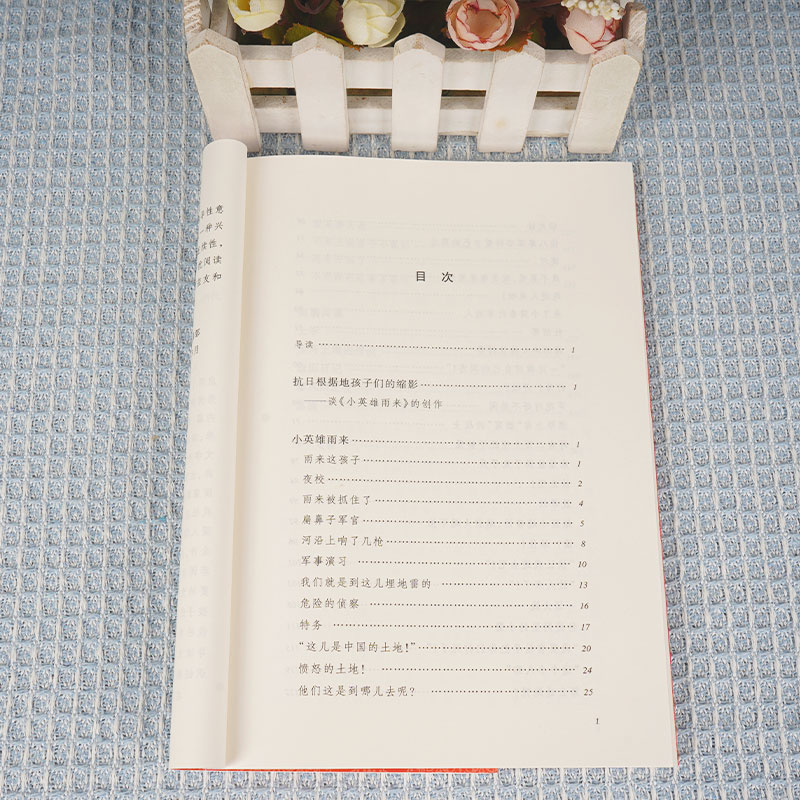 性意
一种兴
读性，
阅读
友和
目 次
导读 1
抗日根据地孩子们的缩影 1
——谈《小英雄雨来》的创作
小英雄雨来 1
雨来这孩子 1
夜校 2
雨来被抓住了 4
扁鼻子军官 5
河沿上响了几枪 8
军事演习 10
我们就是到这儿埋地雷的 13
危险的侦察 16
特务 17
“这儿是中国的土地！” 20
愤怒的土地！ 24
他们这是到哪儿去呢？ 25
1